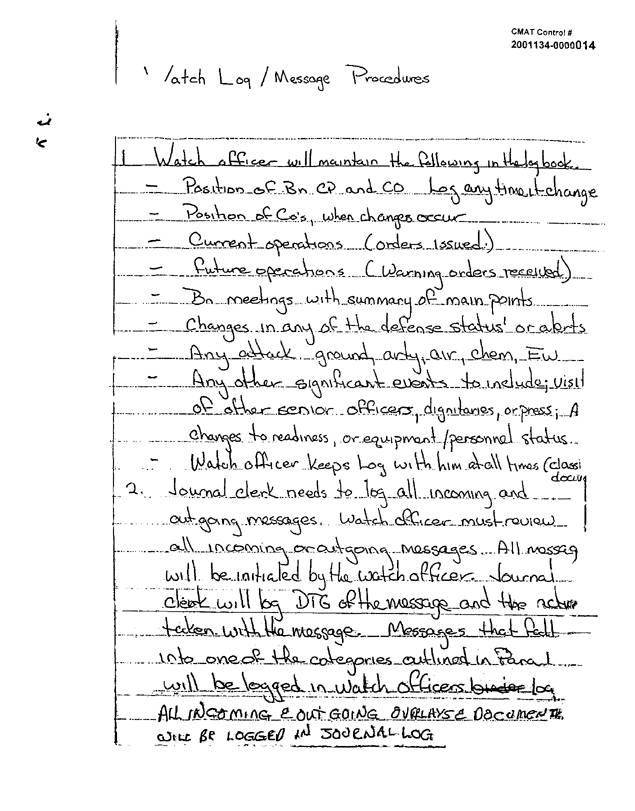 CMAT Control #
2001134-0000014
/atch Log / Message Procedures
1 Watch officer will maintain the following in the log book.
- Position of Bn CP and CO Log any time it change
- Position of Co's, when changes occur
- Current operations (orders issued.)
- Future operations (Warning orders received)
- Bn meetings with summary of main points
- Changes in any of the defense status' or alerts
- Any attack ground, arty, air, chem, EW
- Any other significant events to include; visit
of other senior officers, dignitaries, or press; A
changes to readiness, or equipment/personnel status.
- Watch officer keeps Log with him at all times (classi
docum
2. Journal clerk needs to log all incoming and
outgoing messages. Watch officer must review
all incoming or outgoing messages. All messag
will be initialed by the watch officer. Journal
clerk will log DTG of the message and the action
taken with the message. Messages that fall
into one of the categories outlined in Para 1
will be logged in Watch officers log
ALL INCOMING & OUT GOING OVERLAYS & DOCUMENTS
WILL BE LOGGED IN JOURNAL LOG